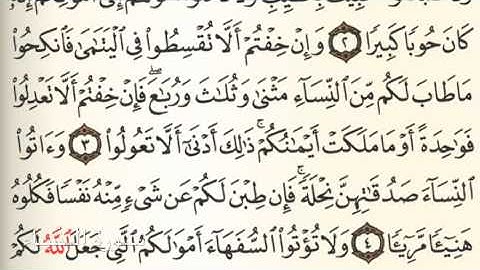 كَانَ حُوبًا كَبِيرًا ٢ وَإِنْ خِفْتُمْ أَلَّا تُقْسِطُوا۟ فِى ٱلْيَتَـٰمَىٰ فَٱنكِحُوا۟
مَا طَابَ لَكُم مِّنَ ٱلنِّسَآءِ مَثْنَىٰ وَثُلَـٰثَ وَرُبَـٰعَ ۖ فَإِنْ خِفْتُمْ أَلَّا تَعْدِلُوا۟
فَوَٰحِدَةً أَوْ مَا مَلَكَتْ أَيْمَـٰنُكُمْ ۚ ذَٰلِكَ أَدْنَىٰٓ أَلَّا تَعُولُوا۟ ٣ وَءَاتُوا۟
ٱلنِّسَآءَ صَدُقَـٰتِهِنَّ نِحْلَةً ۚ فَإِن طِبْنَ لَكُمْ عَن شَىْءٍ مِّنْهُ نَفْسًا فَكُلُوهُ
هَنِيٓـًٔا مَّرِيٓـًٔا ٤ وَلَا تُؤْتُوا۟ ٱلسُّفَهَآءَ أَمْوَٰلَكُمُ ٱلَّتِى جَعَلَ ٱللَّهُ لَكُمْ